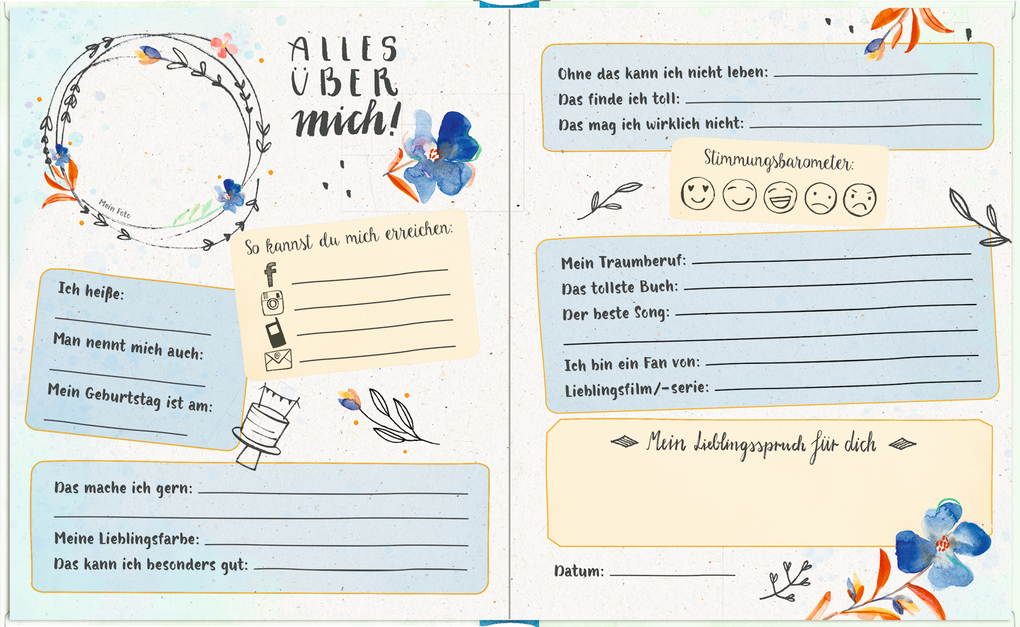 ALLES
ÜBER
mich!
Mein Foto
So kannst du mich erreichen:
f
Ich heiße:
Man nennt mich auch:
Mein Geburtstag ist am:
Das mache ich gern:
Meine Lieblingsfarbe:
Das kann ich besonders gut:
Ohne das kann ich nicht leben:
Das finde ich toll:
Das mag ich wirklich nicht:
Stimmungsbarometer:
Mein Traumberuf:
Das tollste Buch:
Der beste Song:
Ich bin ein Fan von:
Lieblingsfilm/-serie:
Mein Lieblingsspruch für dich
Datum: